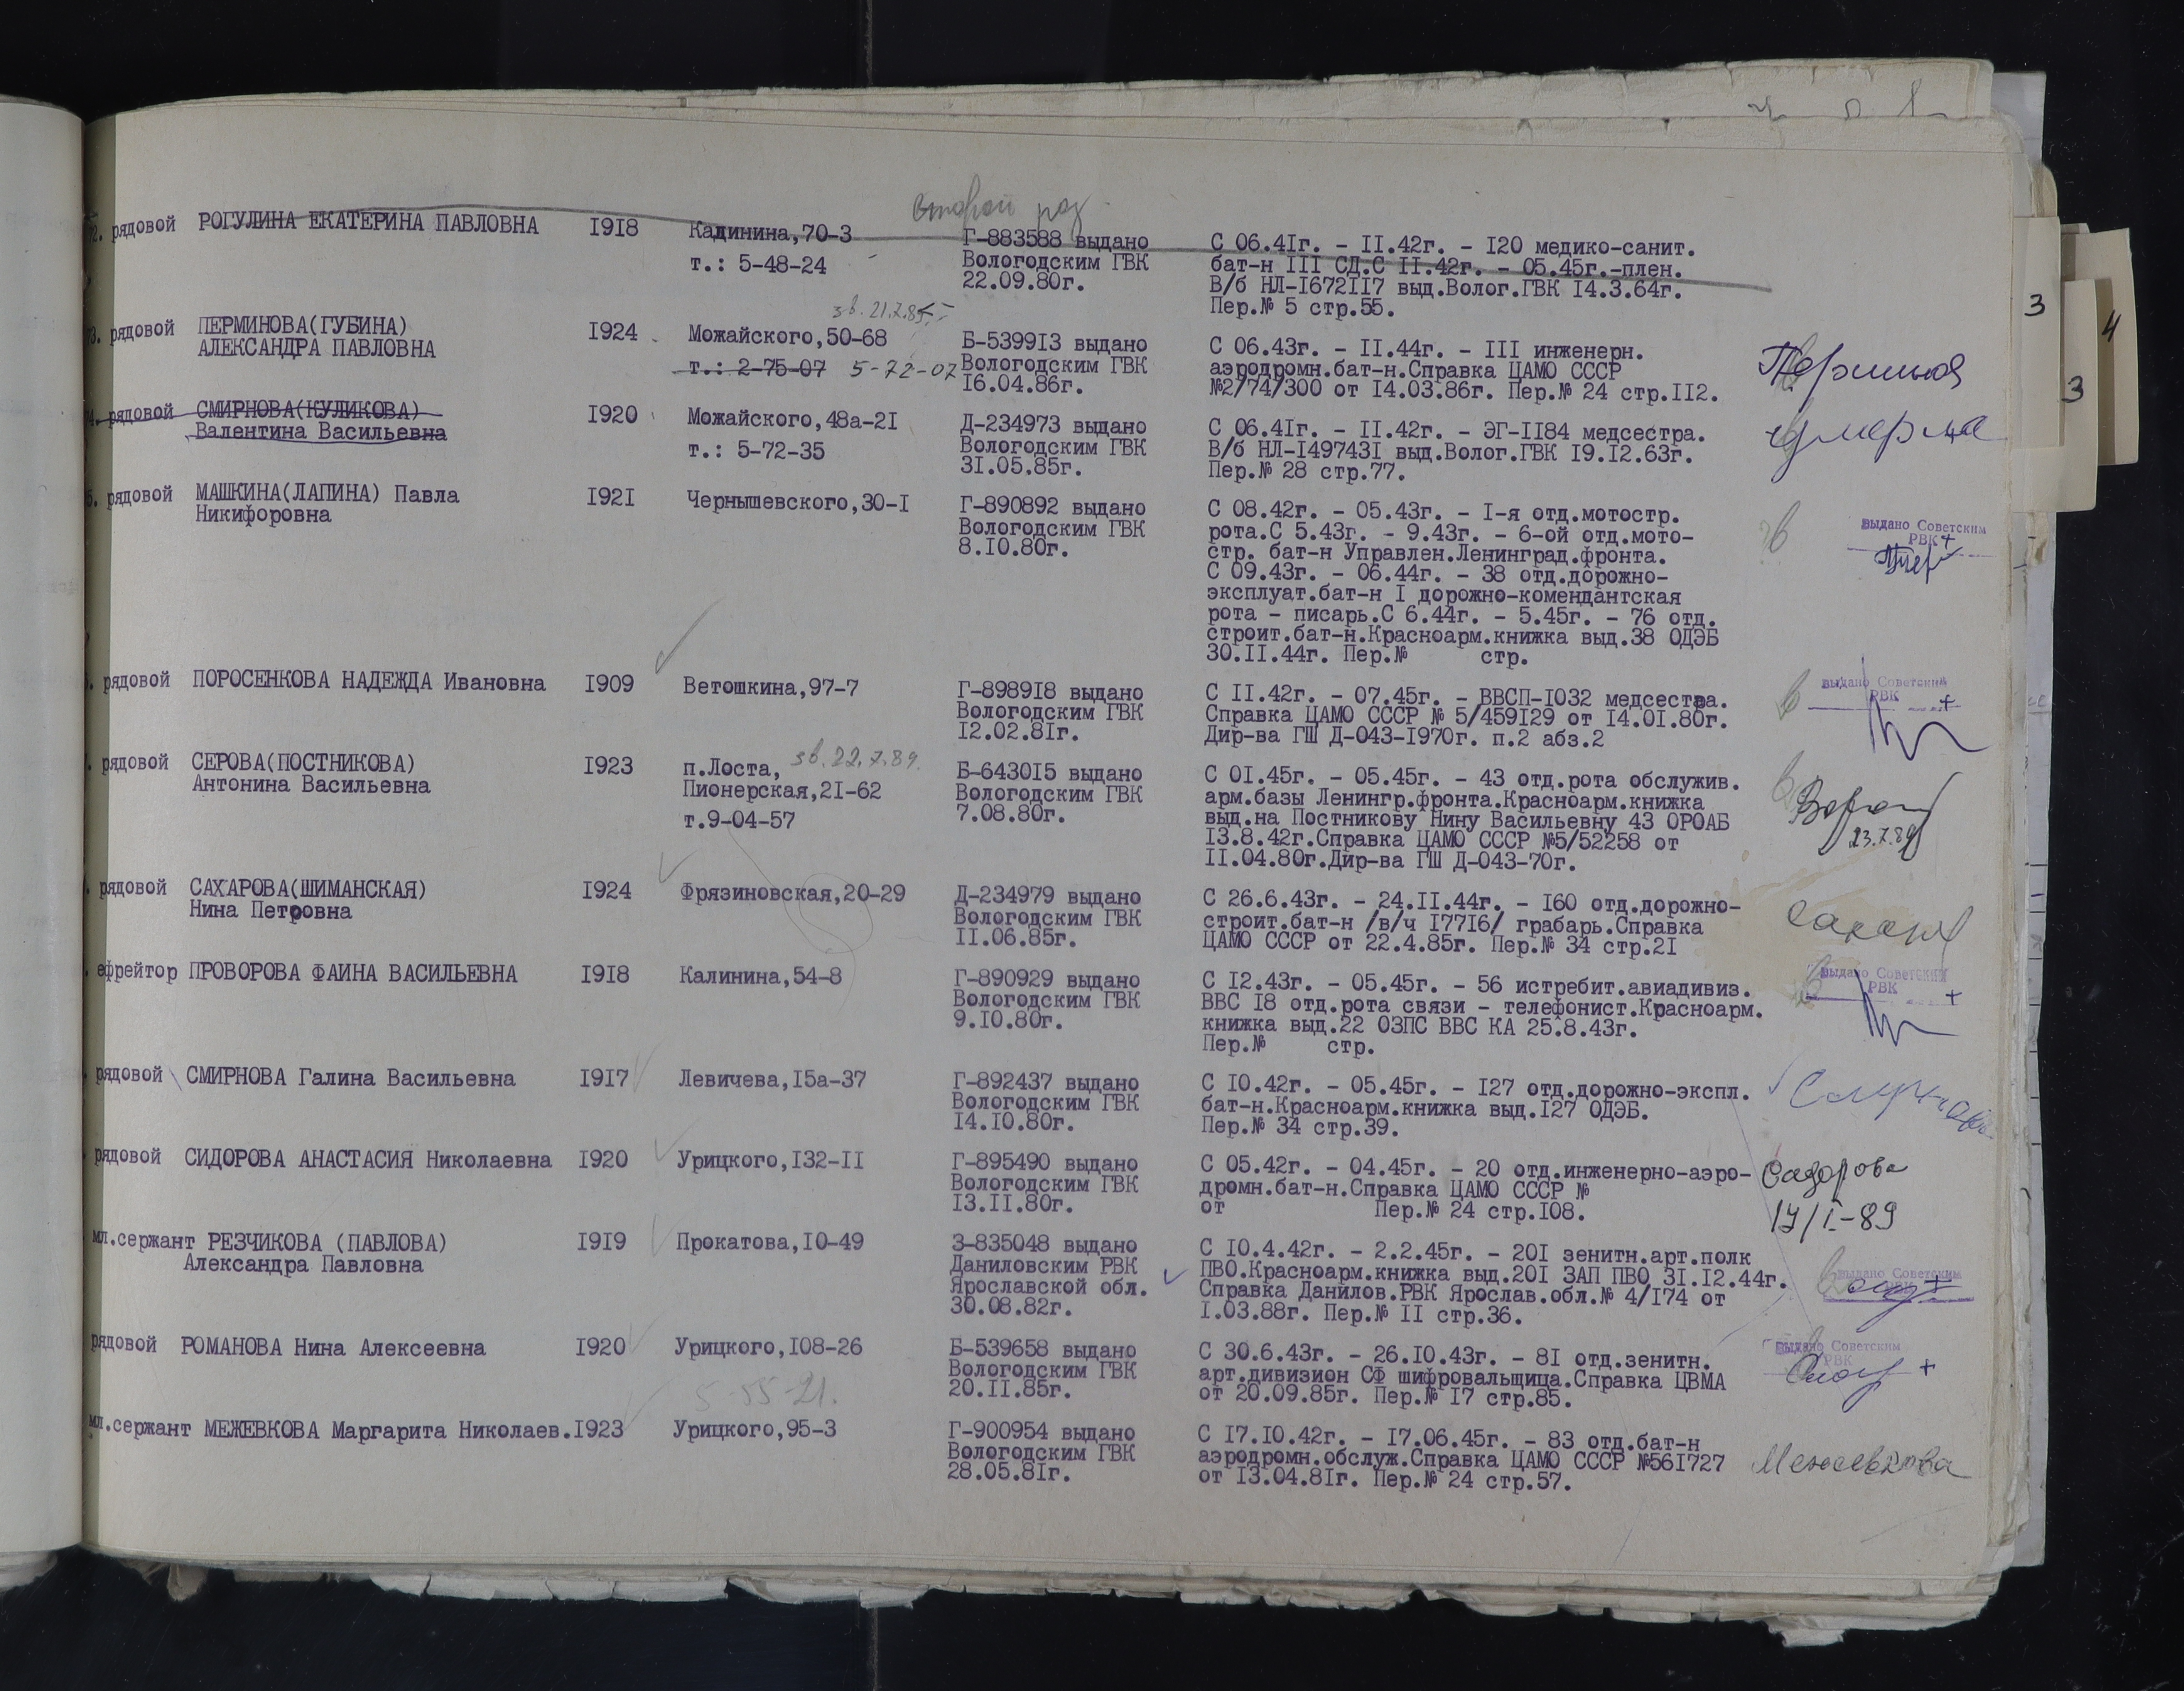 второй раз
72. рядовой РОГУЛИНА ЕКАТЕРИНА ПАВЛОВНА I9I8 Кадинина,70-3 Г-883588 выдано С 06.4Iг. - II.42г. - I20 медико-санит.
т.: 5-48-24 Вологодским ГВК бат-н III СД.С II.42г. - 05.45г.-плен.
22.09.80г. В/б НЛ-I672II7 выд.Волог.ГВК I4.3.64г.
Пер.№ 5 стр.55.
зв. 21.7.85
73. рядовой ПЕРМИНОВА(ГУБИНА) I924 Можайского,50-68 Б-5399I3 выдано С 06.43г. - II.44г. - III инженерн.
АЛЕКСАНДРА ПАВЛОВНА т.: 2-75-07 5-72-07 Вологодским ГВК аэродромн.бат-н.Справка ЦАМО СССР
I6.04.86г. №2/74/300 от I4.03.86г. Пер.№ 24 стр.II2.
74. рядовой СМИРНОВА(КУЛИКОВА) I920 Можайского,48а-2I Д-234973 выдано С 06.4Iг. - II.42г. - ЭГ-II84 медсестра. умерла
Валентина Васильевна т.: 5-72-35 Вологодским ГВК В/б НЛ-I49743I выд.Волог.ГВК I9.I2.63г.
3I.05.85г. Пер.№ 28 стр.77.
5. рядовой МАШКИНА(ЛАПИНА) Павла I92I Чернышевского,30-I Г-890892 выдано С 08.42г. - 05.43г. - I-я отд.мотостр. выдано Советским
Никифоровна Вологодским ГВК рота.С 5.43г. - 9.43г. - 6-ой отд.мото- РВК +
8.I0.80г. стр. бат-н Управлен.Ленинград.фронта.
С 09.43г. - 06.44г. - 38 отд.дорожно-
эксплуат.бат-н I дорожно-комендантская
рота - писарь.С 6.44г. - 5.45г. - 76 отд.
строит.бат-н.Красноарм.книжка выд.38 ОДЭБ
30.II.44г. Пер.№ стр.
рядовой ПОРОСЕНКОВА НАДЕЖДА Ивановна I909 Ветошкина,97-7 Г-8989I8 выдано С II.42г. - 07.45г. - ВВСП-I032 медсестра. выдано Советским
Вологодским ГВК Справка ЦАМО СССР № 5/459I29 от I4.0I.80г. РВК +
I2.02.8Iг. Дир-ва ГШ Д-043-I970г. п.2 абз.2
рядовой СЕРОВА(ПОСТНИКОВА) I923 п.Лоста, зв.22.7.89. Б-6430I5 выдано С 0I.45г. - 05.45г. - 43 отд.рота обслужив.
Антонина Васильевна Пионерская,2I-62 Вологодским ГВК арм.базы Ленингр.фронта.Красноарм.книжка
т.9-04-57 7.08.80г. выд.на Постникову Нину Васильевну 43 ОРОАБ
I3.8.42г.Справка ЦАМО СССР №5/52258 от 23.7.89
II.04.80г.Дир-ва ГШ Д-043-70г.
рядовой САХАРОВА(ШИМАНСКАЯ) I924 Фрязиновская,20-29 Д-234979 выдано С 26.6.43г. - 24.II.44г. - I60 отд.дорожно-
Нина Петровна Вологодским ГВК строит.бат-н /в/ч I77I6/ грабарь.Справка
II.06.85г. ЦАМО СССР от 22.4.85г. Пер.№ 34 стр.2I
ефрейтор ПРОВОРОВА ФАИНА ВАСИЛЬЕВНА I9I8 Калинина,54-8 Г-890929 выдано С I2.43г. - 05.45г. - 56 истребит.авиадивиз. выдано Советским
Вологодским ГВК ВВС I8 отд.рота связи - телефонист.Красноарм. РВК +
9.I0.80г. книжка выд.22 ОЗПС ВВС КА 25.8.43г.
Пер.№ стр.
рядовой СМИРНОВА Галина Васильевна I9I7 Левичева,I5а-37 Г-892437 выдано С I0.42г. - 05.45г. - I27 отд.дорожно-экспл. Смирнова
Вологодским ГВК бат-н.Красноарм.книжка выд.I27 ОДЭБ.
I4.I0.80г. Пер.№ 34 стр.39.
рядовой СИДОРОВА АНАСТАСИЯ Николаевна I920 Урицкого,I32-II Г-895490 выдано С 05.42г. - 04.45г. - 20 отд.инженерно-аэро- Сидорова
Вологодским ГВК дромн.бат-н.Справка ЦАМО СССР №
I3.II.80г. от Пер.№ 24 стр.I08. 17/I-89
мл.сержант РЕЗЧИКОВА (ПАВЛОВА) I9I9 Прокатова,I0-49 З-835048 выдано С I0.4.42г. - 2.2.45г. - 20I зенитн.арт.полк
Александра Павловна Даниловским РВК ПВО.Красноарм.книжка выд.20I ЗАП ПВО 3I.I2.44г. выдано Советским
Ярославской обл. Справка Данилов.РВК Ярослав.обл.№ 4/I74 от
30.08.82г. I.03.88г. Пер.№ II стр.36.
рядовой РОМАНОВА Нина Алексеевна I920 Урицкого,I08-26 Б-539658 выдано С 30.6.43г. - 26.I0.43г. - 8I отд.зенитн. выдано Советским
Вологодским ГВК арт.дивизион СФ шифровальщица.Справка ЦВМА РВК +
5 55-21. 20.II.85г. от 20.09.85г. Пер.№ I7 стр.85.
мл.сержант МЕЖЕВКОВА Маргарита Николаев.I923 Урицкого,95-3 Г-900954 выдано С I7.I0.42г. - I7.06.45г. - 83 отд.бат-н Межевкова
Вологодским ГВК аэродромн.обслуж.Справка ЦАМО СССР №56I727
28.05.8Iг. от I3.04.8Iг. Пер.№ 24 стр.57.
3
4
3